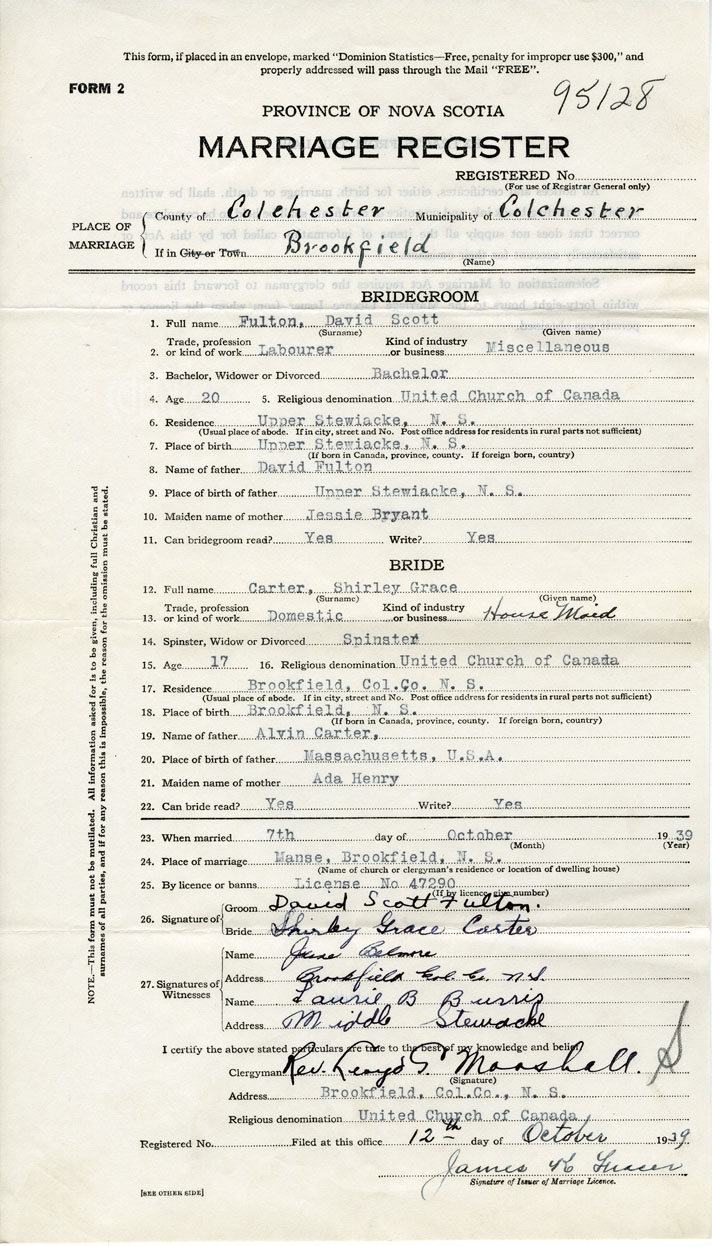 This form, if placed in an envelope, marked "Dominion Statistics—Free, penalty for improper use $300," and
properly addressed will pass through the Mail "FREE".
FORM 2
95128
PROVINCE OF NOVA SCOTIA
MARRIAGE REGISTER
REGISTERED No.
(For use of Registrar General only)
PLACE OF MARRIAGE
County of Colchester Municipality of Colchester
If in City or Town Brookfield
(Name)
BRIDEGROOM
1. Full name Fulton, David Scott
(Surname) (Given name)
2. Trade, profession or kind of work Labourer Kind of industry or business Miscellaneous
3. Bachelor, Widower or Divorced Bachelor
4. Age 20 5. Religious denomination United Church of Canada
6. Residence Upper Stewiacke, N. S.
(Usual place of abode. If in city, street and No. Post office address for residents in rural parts not sufficient)
7. Place of birth Upper Stewiacke, N. S.
(If born in Canada, province, county. If foreign born, country)
8. Name of father David Fulton
9. Place of birth of father Upper Stewiacke, N. S.
10. Maiden name of mother Jessie Bryant
11. Can bridegroom read? Yes Write? Yes
BRIDE
12. Full name Carter, Shirley Grace
(Surname) (Given name)
13. Trade, profession or kind of work Domestic Kind of industry or business House Maid
14. Spinster, Widow or Divorced Spinster
15. Age 17 16. Religious denomination United Church of Canada
17. Residence Brookfield, Col.Co. N. S.
(Usual place of abode. If in city, street and No. Post office address for residents in rural parts not sufficient)
18. Place of birth Brookfield, N. S.
(If born in Canada, province, county. If foreign born, country)
19. Name of father Alvin Carter,
20. Place of birth of father Massachusetts, U.S.A.
21. Maiden name of mother Ada Henry
22. Can bride read? Yes Write? Yes
23. When married 7th day of October 1939
(Month) (Year)
24. Place of marriage Manse, Brookfield, N. S.
(Name of church or clergyman's residence or location of dwelling house)
25. By licence or banns License No 47290
(If by licence, give number)
26. Signature of
Groom David Scott Fulton.
Bride Shirley Grace Carter
27. Signatures of Witnesses
Name June Belmore
Address Brookfield Col. Co. N.S
Name Laurie B Burris
Address Middle Stewacke
I certify the above stated particulars are true to the best of my knowledge and belief.
Clergyman Rev. Lloyd G. Marshall.
(Signature)
Address Brookfield, Col.Co., N. S.
Religious denomination United Church of Canada
Registered No. Filed at this office 12th day of October 1939
James K Fraser
Signature of Issuer of Marriage Licence.
[SEE OTHER SIDE]
NOTE.—This form must not be mutilated. All information asked for is to be given, including full Christian and
surnames of all parties, and if for any reason this is impossible, the reason for the omission must be stated.